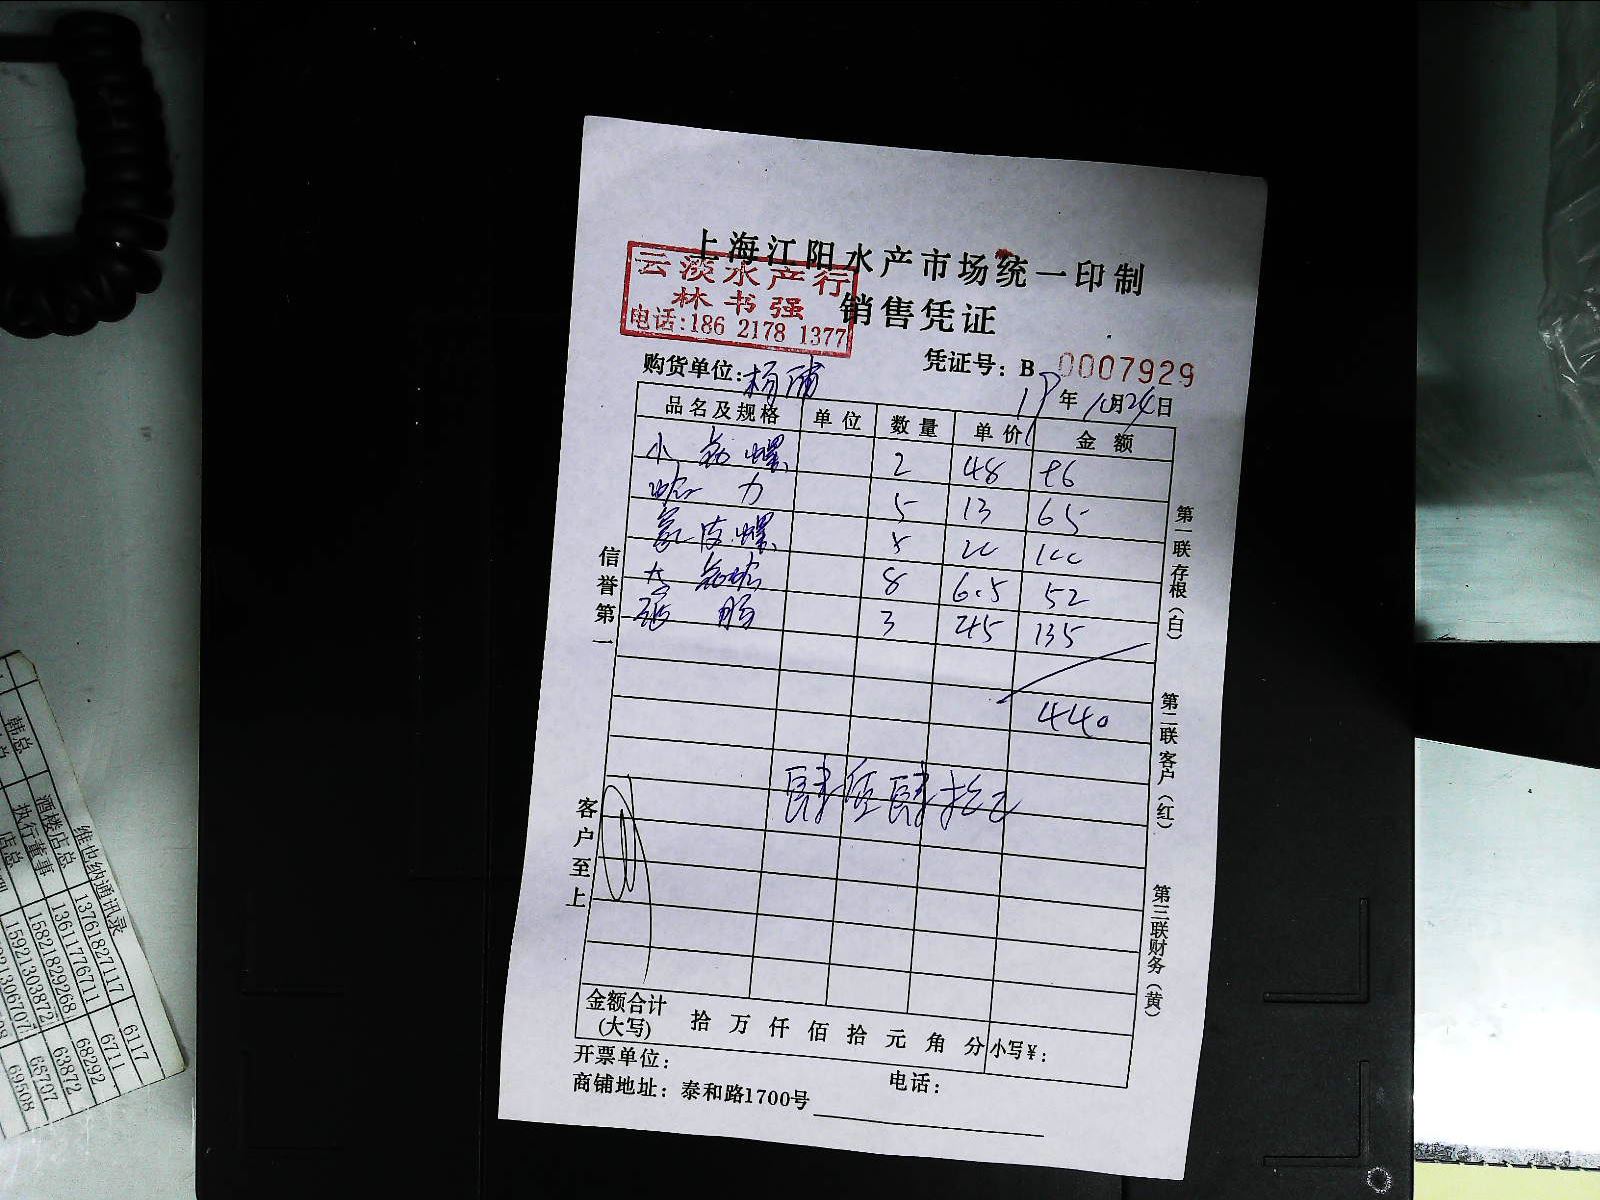 上海江阳水产市场统一印制
销售凭证
云淡水产行
林书强
电话:186 2178 1377
凭证号：B 0007929
购货单位:杨浦
19年10月24日
品名及规格 单位 数量 单价 金额
小 螺 2 48 96
哈 力 5 13 65
皮螺 5 20 100
大 8 6.5 52
3 45 135
440
肆佰肆拾元
信誉第一
客户至上
第一联存根（白）
第二联客户（红）
第三联财务（黄）
金额合计
(大写) 拾 万 仟 佰 拾 元 角 分 小写¥：
开票单位： 电话：
商铺地址：泰和路1700号
维也纳通讯录
酒楼店总 13761827117 6117
执行董事 13611776711 6711
店总 15821829268 68292
15921303872 63872
韩总
69508